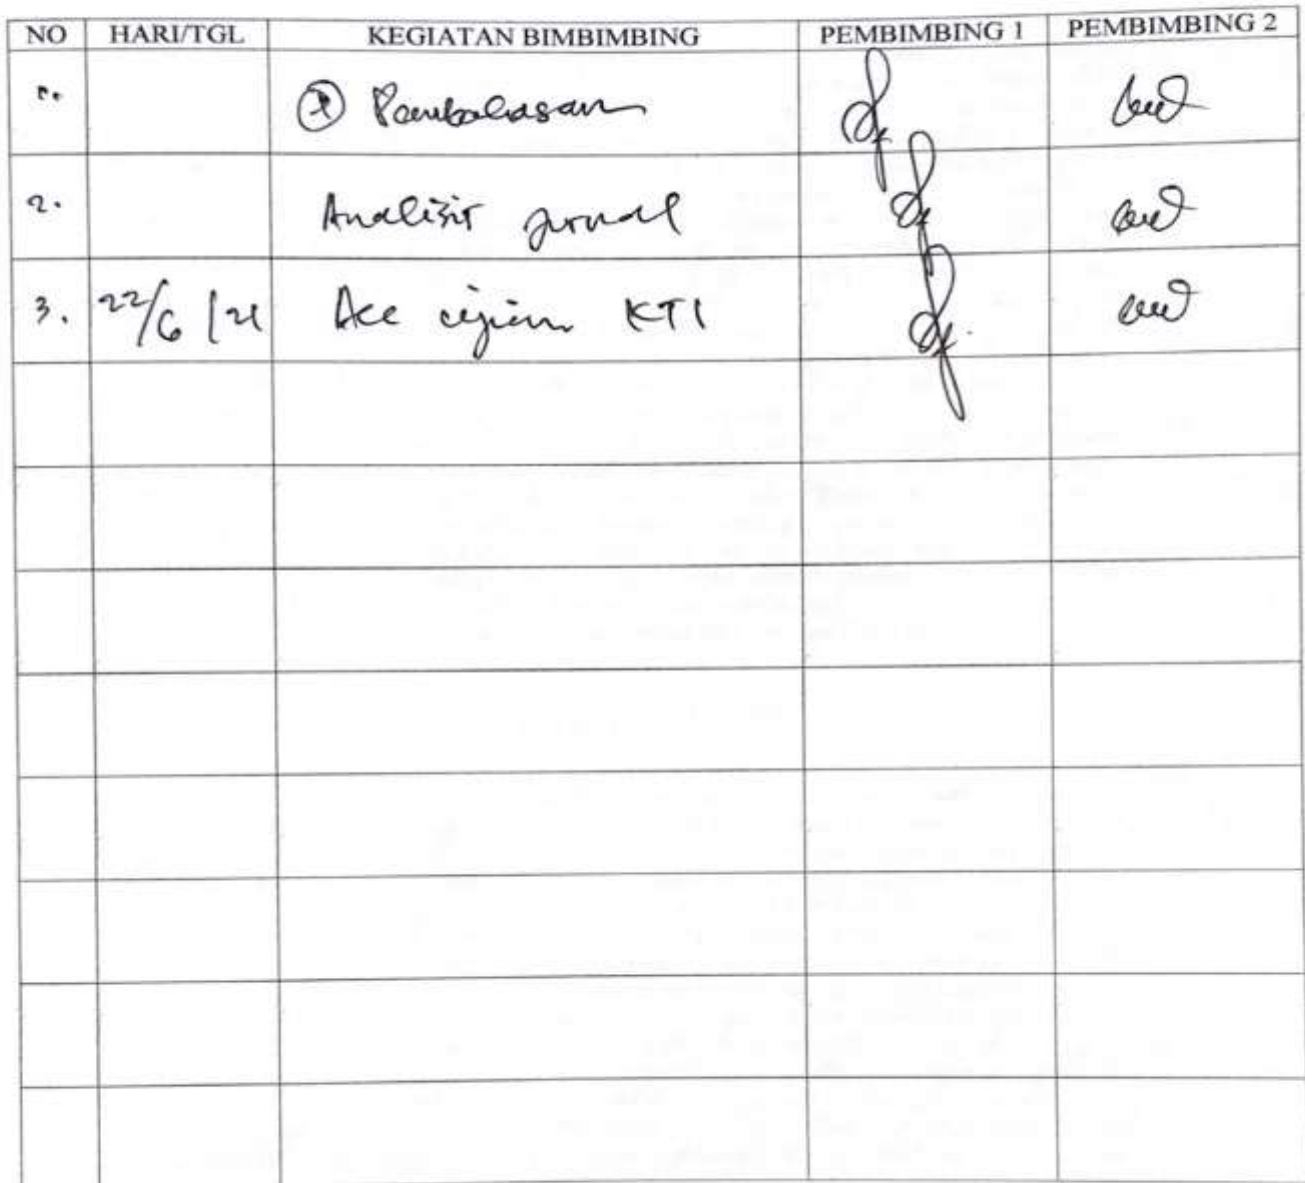 NO HARI/TGL KEGIATAN BIMBIMBING PEMBIMBING 1 PEMBIMBING 2
Pembahasan
2. Analisis jurnal
3. 22/6/21 Acc ujian KTI